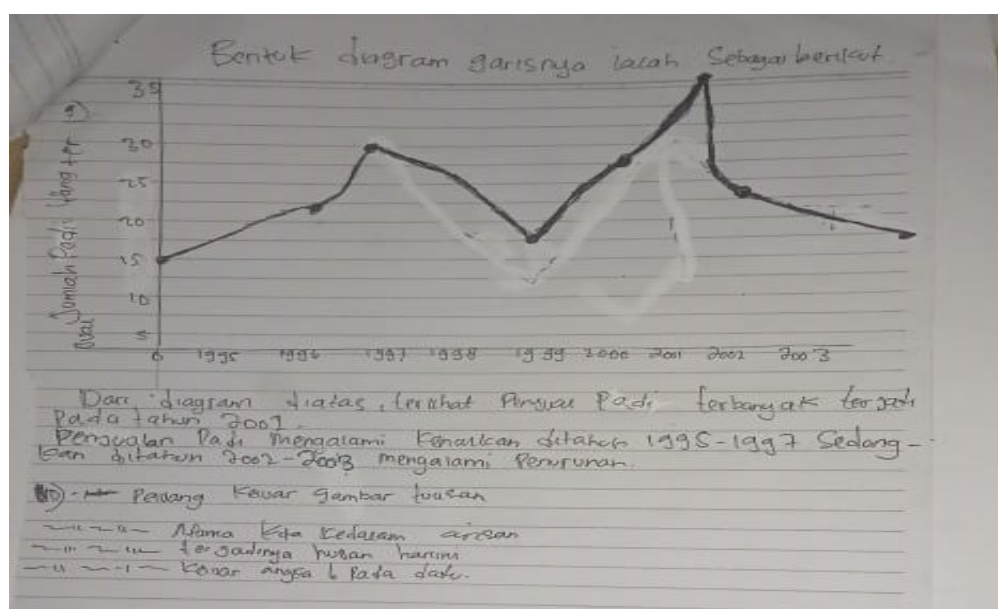 Bentuk diagram garisnya ialah Sebagai berikut
35
30
25
20
15
10
5
0 1995 1996 1997 1998 1999 2000 2001 2002 2003
Jumlah Padi Yang ter
Dari diagram diatas, terlihat Padi terbanyak terjadi
Pada tahun
Penjualan Padi mengalami Kenaikan ditahun 1995-1997 Sedang-
kan ditahun 2002-2003 mengalami Penurunan.
Peluang Keluar gambar tulisan
Nama Kita Kedalam arisan
terjadinya hujan hari ini
Keluar angka 6 Pada dadu.